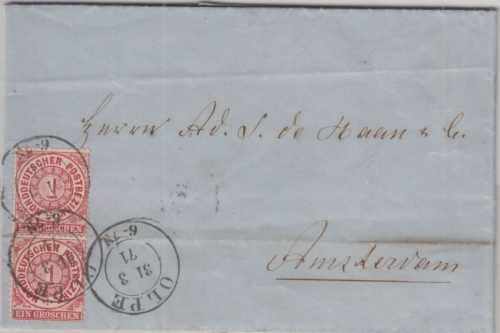 Herrn Ad. S. de Haan & C.
Amsterdam
NORDDEUTSCHER POSTBEZIRK
1
GROSCHEN
NORDDEUTSCHER POSTBEZIRK
EIN GROSCHEN
OLPE
31 3
71
6-7N